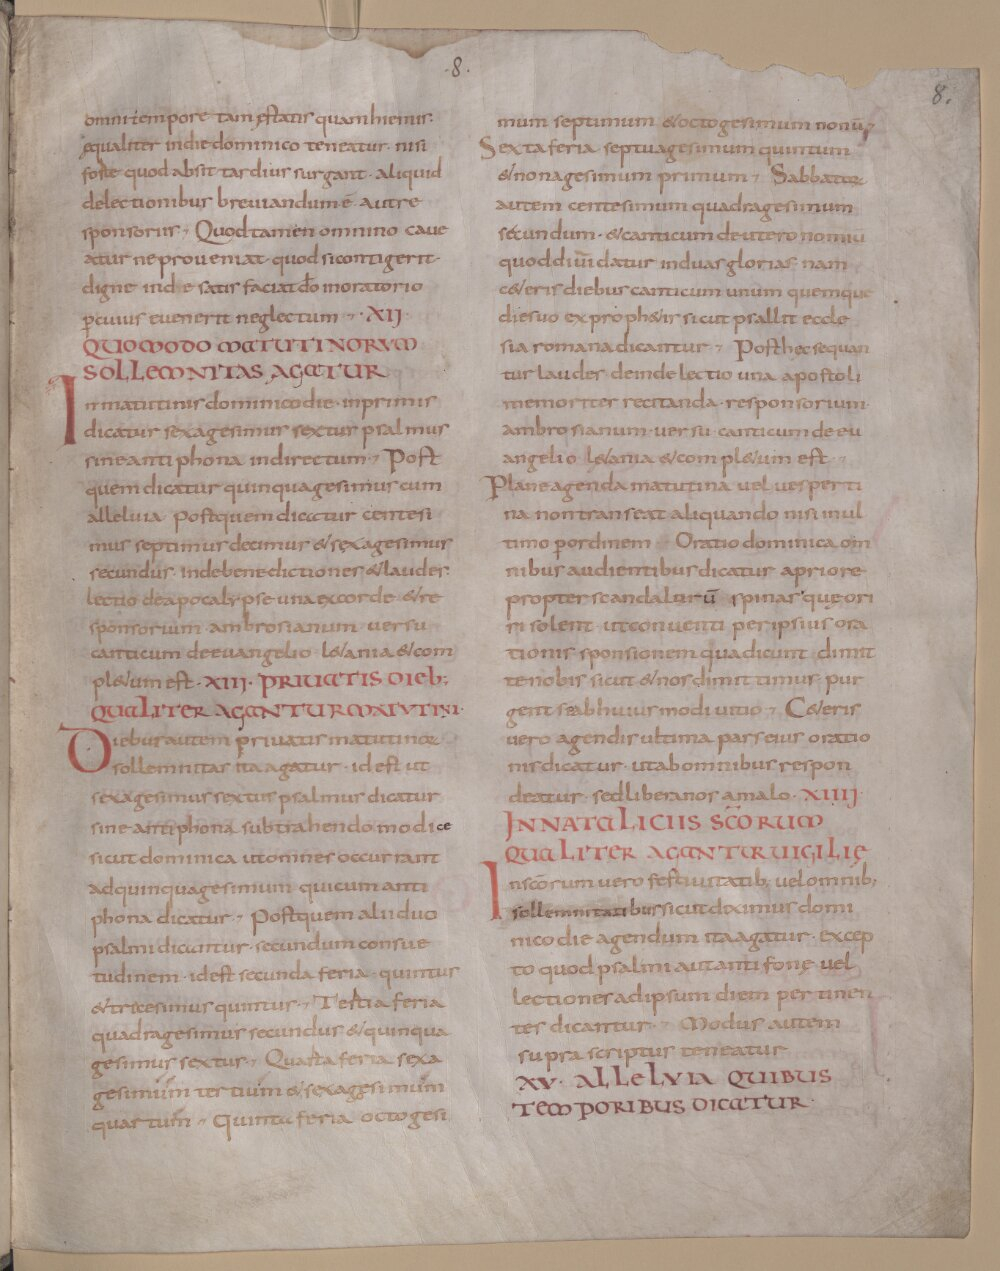 .8.
8.
omni tempore tam ęstatis quam hiemis
ęqualiter in die dominico teneatur nisi
forte quod absit tardius surgant aliquid
de lectionibus breviandum ē aut re
sponsoriis Quod tamen omnino cave
atur ne proveniat quod si contigerit
digne inde satisfaciat dō in oratorio
p cuius evenerit neglectum XII
QUOMODO MATUTINORUM
SOLLEMNITAS AGATUR
In matutinis dominico die inprimis
dicatur sexagesimus sextus psalmus
sine antiphona in directum Post
quem dicatur quinquagesimus cum
alleluia Post quem dicatur centesi
mus septimus decimus & sexagesimus
secundus inde benedictiones & laudes
lectio de apocalypse una ex corde & re
sponsorium ambrosianum versu
canticum de evangelio l&ania & com
pl&um est XIII PRIVATIS DIEB;
QUALITER AGANTUR MATUTINI
Diebus autem privatis matutinor
sollemnitas ita agatur id est ut
sexagesimus sextus psalmus dicatur
sine antiphona subtrahendo modice
sicut dominica ut omnes occurrant
ad quinquagesimum qui cum anti
phona dicatur Post quem alii duo
psalmi dicantur secundum consue
tudinem id est secunda feria quintus
& tricesimus quintus Tertia feria
quadragesimus secundus & quinqua
gesimus sextus Quarta feria sexa
gesimum tertium & sexagesimum
quartum Quinta feria octogesi
mum septimum & octogesimum nonū
Sexta feria septuagesimum quintum
& nonagesimum primum Sabbator
autem centesimum quadragesimum
secundum & canticum deuteronomiū
quod divisum datur in duas glorias nam
c&eris diebus canticum unum quemque
die suo ex proph&is sicut psallit eccle
sia romana dicantur Post hęc sequan
tur laudes deinde lectio una apostoli
memoriter recitanda responsorium
ambrosianum versu canticum de eu
angelio l&ania & compl&um est
Plane agenda matutina vel vesperti
na non transeat aliquando nisi in ul
timo p ordinem Oratio dominica om
nibus audientibus dicatur a priore
propter scandalorū spinas quę ori
ri solent ut conventi per ipsius ora
tionis sponsionem qua dicunt dimit
te nobis sicut & nos dimittimus pur
gent se ab huiusmodi vitio C&eris
vero agendis ultima pars eius oratio
nis dicatur ut ab omnibus respon
deatur sed libera nos a malo XIIII
IN NATALICIIS SC̄ORUM
QUALITER AGANTUR VIGILIĘ
In sc̄orum vero festivitatib; vel omnib;
sollemnitatibus sicut diximus domi
nico die agendum ita agatur excep
to quod psalmi aut antifonę vel
lectiones ad ipsum diem pertinen
tes dicantur Modus autem
supra scriptus teneatur
XV ALLELUIA QUIBUS
TEMPORIBUS DICATUR